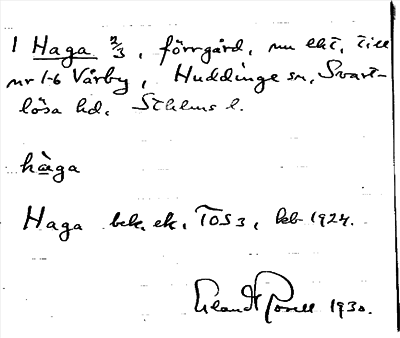 1 Haga 2/3, förrgård, nu eht. till
nr 1-6 Vårby, Huddinge sn, Svart-
lösa hd. Sthlms l.
hàga
Haga bek. ek. TOS 3, keb 1924.
Erlandt Rosell 1930.